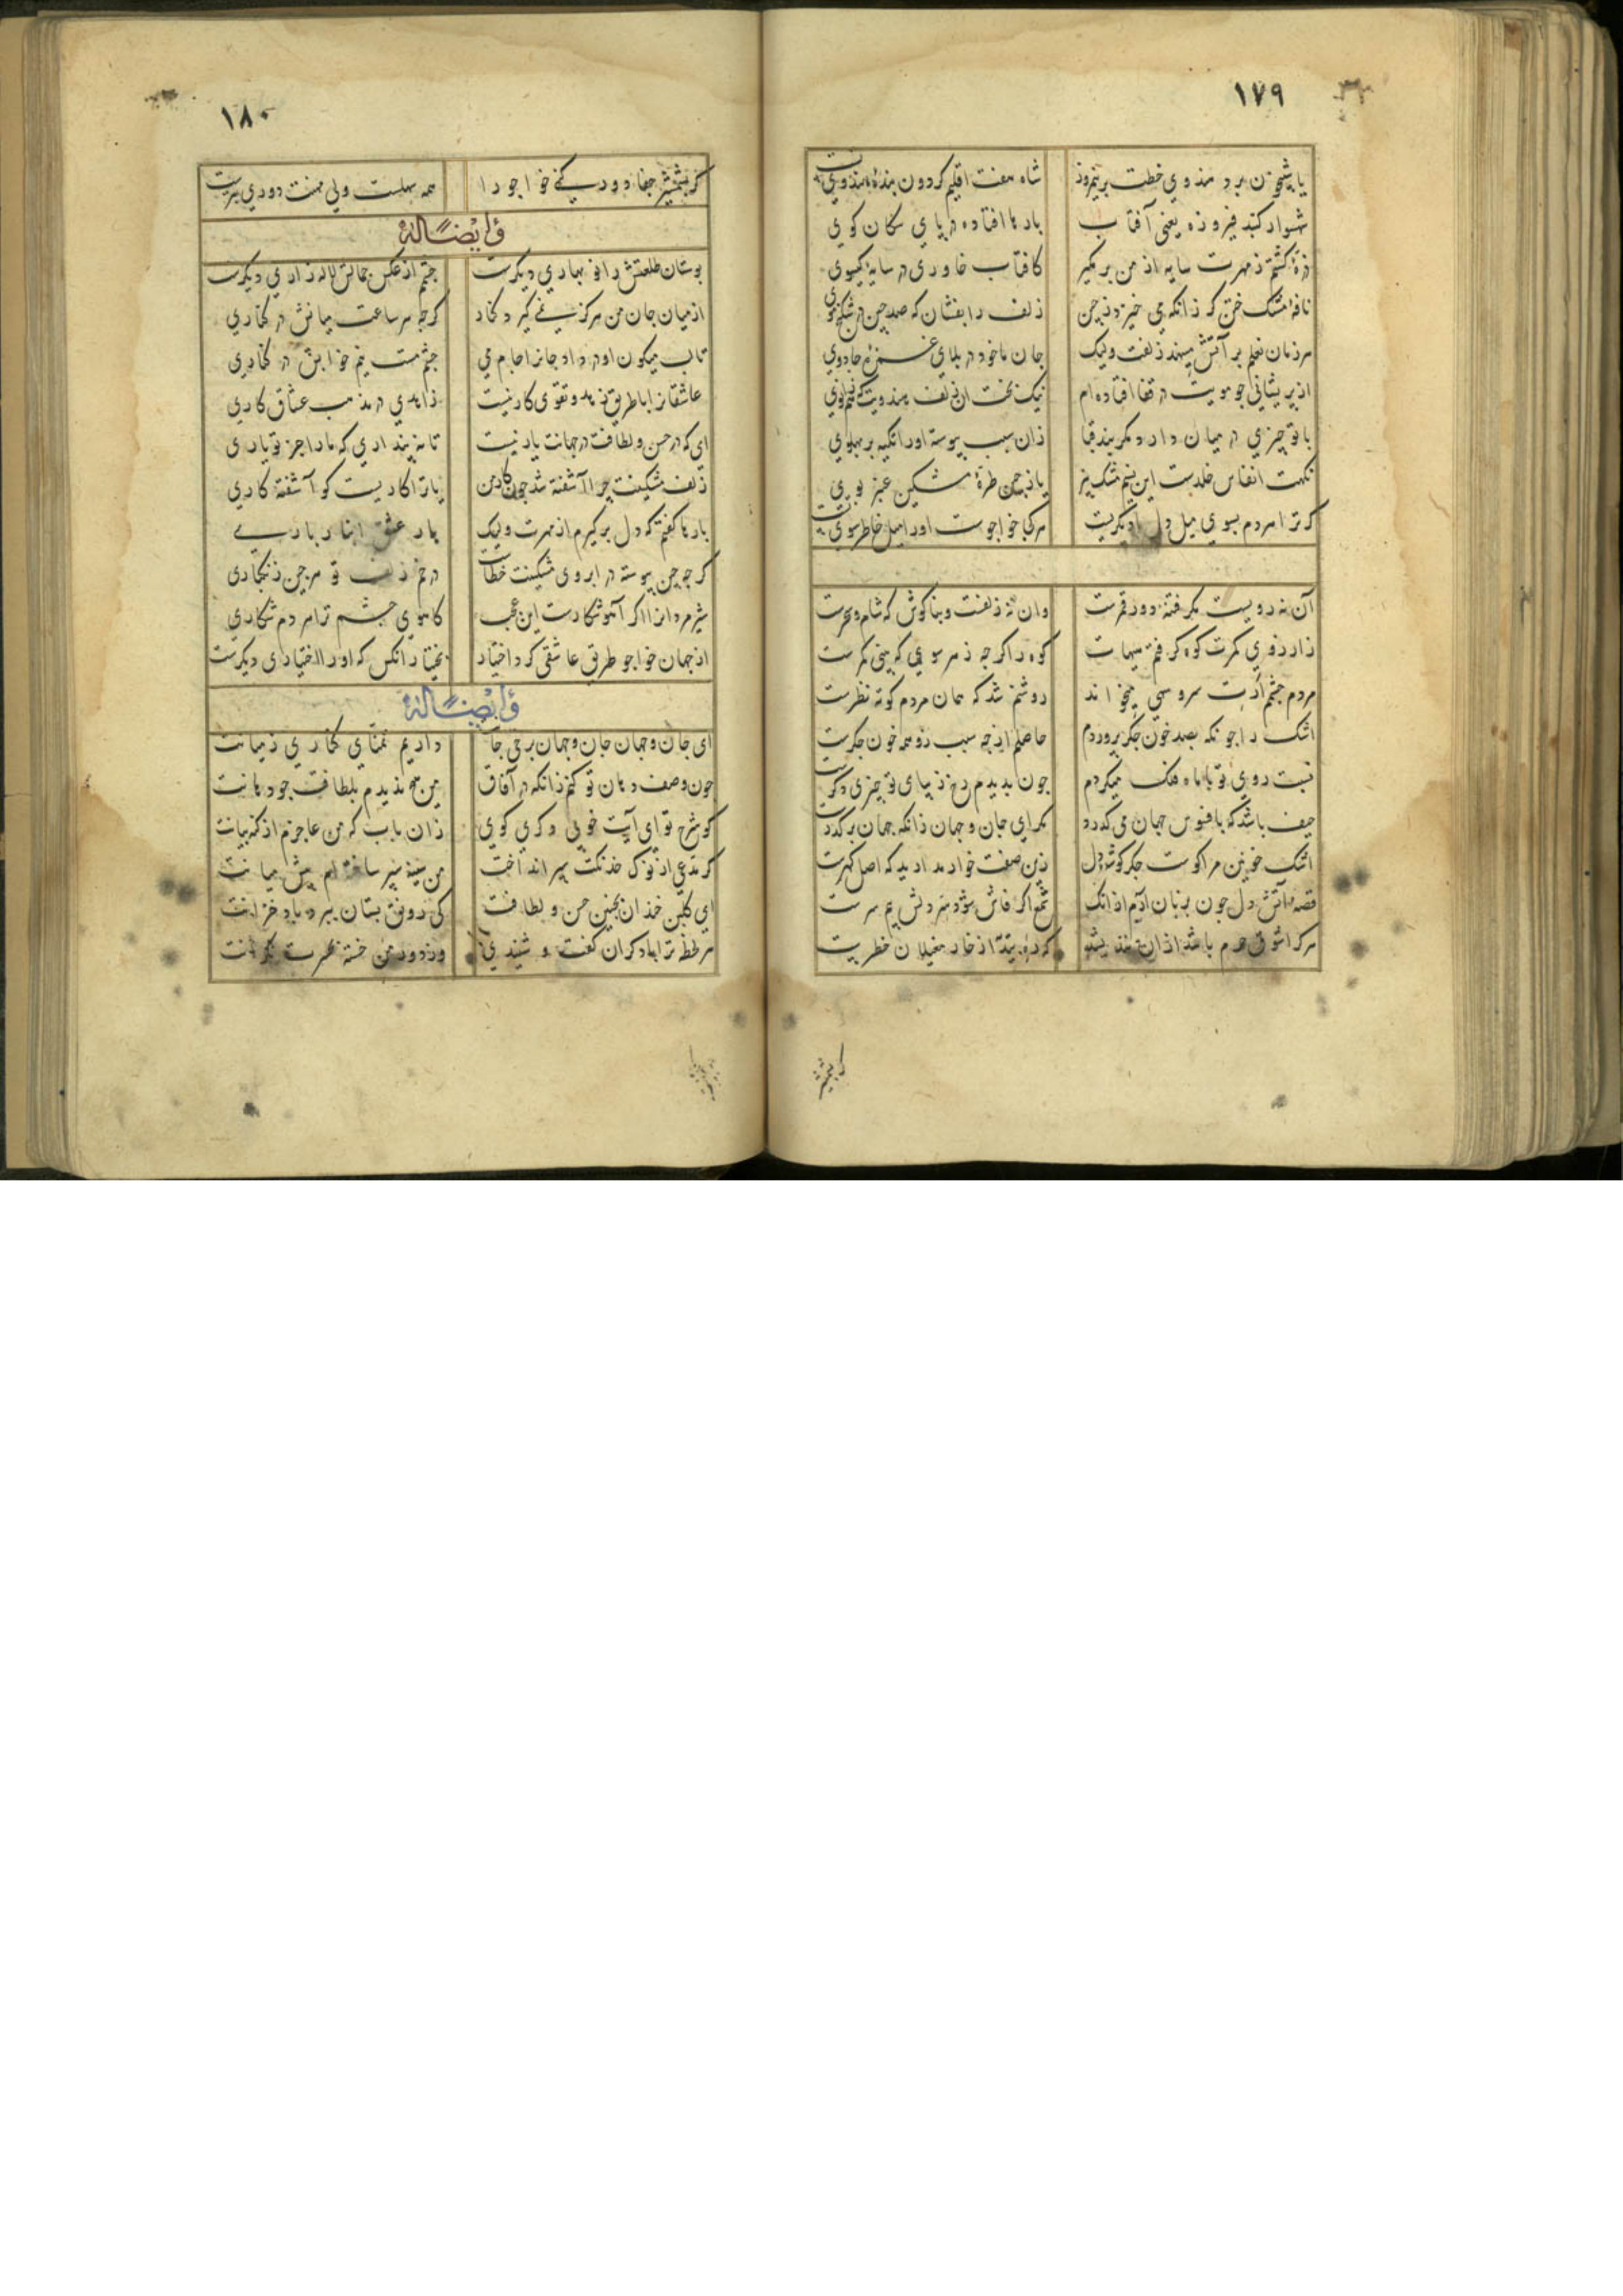 ۱۷۹
یا شبیخون برد هندوی خطت بر نیمروز شاه هفت اقلیم کردون بنده هندوی تست
شهسوار کنبد فیروزه یعنی آفتاب بارها افتاده در پای سکان کوی
ذره کشتم ز مهرت سایه از من بر مکیر کافتاب خاوری در سایه کیسوی
نافه مشک ختن کر زانکه می خیزد ز چین زلف را بفشان که صد چین در شکنج موی
هر زمان نعلم بر آتش مینهد زلفت ولیک جان ما خود در بلای غمزه جادوی
از پریشانی جو مویت در قفا افتاده ام نیک بخت آن زلف هندویت که هم زانوی
با تو چیزی در میان دارد مکر بند قبا زان سبب پیوسته او را تکیه بر پهلوی
نکهت انفاس خلدست این نسیم مشک بیز یا ز چین طره مشکین عنبر بوی
کر ترا هر دم بسوی میل دل با دیکریست هر کجا خواجوست او را میل خاطر سوی تست
آن نه رویست مکر فتنه دور قمرست وان نه زلفست و بناکوش که شام و سحرست
ز ارزوی کمرت کوه کرفتم هیهات کوه را کرجه ز هر سوی که بینی کمرست
مردم جشمم ارت سرو سهی میخواند روشنم شد که همان مردم کوته نظرست
اشک را جونکه بصد خون جکر پروردم حاصلم از چه سبب زو همه خون جکرست
نسبت روی تو با ماه فلک میکردم جون بدیدم رخ زیبای تو چیزی دکرست
حیف باشد که بافسوس جهان می کذرد مکر ای جان و جهان زانکه جهان بر کذرست
اشک خونین مرا کوست جکر کوشه دل زین صفت خوار مدارید که اصل کهرست
قصه آتش دل جون بزبان آرم از انک شمع اکر فاش شود سر دلش بیم سرست
هر کرا شوق حرم باشد ازان نندیشد که ره بادیه از خار مغیلان خطریست
کر بشمشیر
۱۸۰
کر بشمشیر جفا دور کنی خواجو را همه سهلست ولی محنت دوری بترست
وایضاً له
بوستان طلعتش را نوبهاری دیکرست جشم از عکس جمالش لاله زاری دیکرست
از میان جان من هرکز نمی کیرد کنار کرجه هر ساعت میانش در کناری
تا لب میکون او در داد جانرا جام می جشم مست نیم خوابش در خماری
عاشقانرا با طریق زهد و تقوی کار نیست زاهدی در مذهب عشاق کاری
ای که در حسن و لطافت در جهانت یار نیست تا نپنداری که ما را جز تو یاری
زلف مشکینت چرا آشفته شد جون کار من یا ترا کاریست کو آشفته کاری
بارها کفتم که دل بر کیرم از مهرت ولیک بار عشق اینا ر باری
کرجه چین پیوسته در ابروی مشکینت خطاست در خم زلف تو هر چین زنکباری
شیر مردانرا اکر آهو شکارست این عجب کاهوی چشم ترا هر دم شکاری
از جهان خواجو طریق عاشقی کرد اختیار بختیار آنکس که او را اختیاری دیکرست
وایضاً له
ای جان و جهان جان و جهان برخی جانت داریم تمنای کناری ز میانت
جون وصف دهان تو کنم زانکه در آفاق من هیج ندیدم بلطافت جو دهانت
کو شرح تو ای آیت خوبی دکری کوی زان باب که من عاجزم از کنه بیانت
کر مدعی از نوک خدنکت سپر انداخت من سینه سپر ساخته ام پیش سنانت
ای کلبن خندان بجنین حسن و لطافت کی رونق بستان ببرد باد خزانت
هر لحظه ترا با دکران کفت و شنیدی وز دور من خسته بحسرت نکرانت